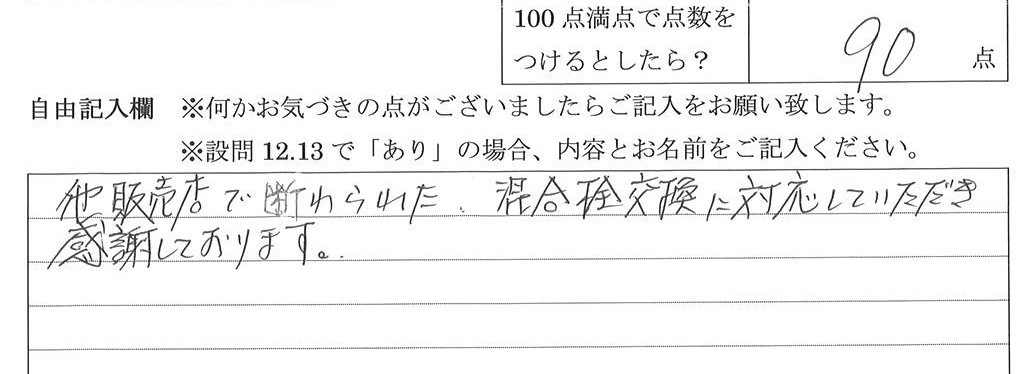 100点満点で点数を
つけるとしたら？
90 点
自由記入欄 ※何かお気づきの点がございましたらご記入をお願い致します。
※設問12.13で「あり」の場合、内容とお名前をご記入ください。
他販売店で断わられた、混合栓交換に対応していただき
感謝しております。